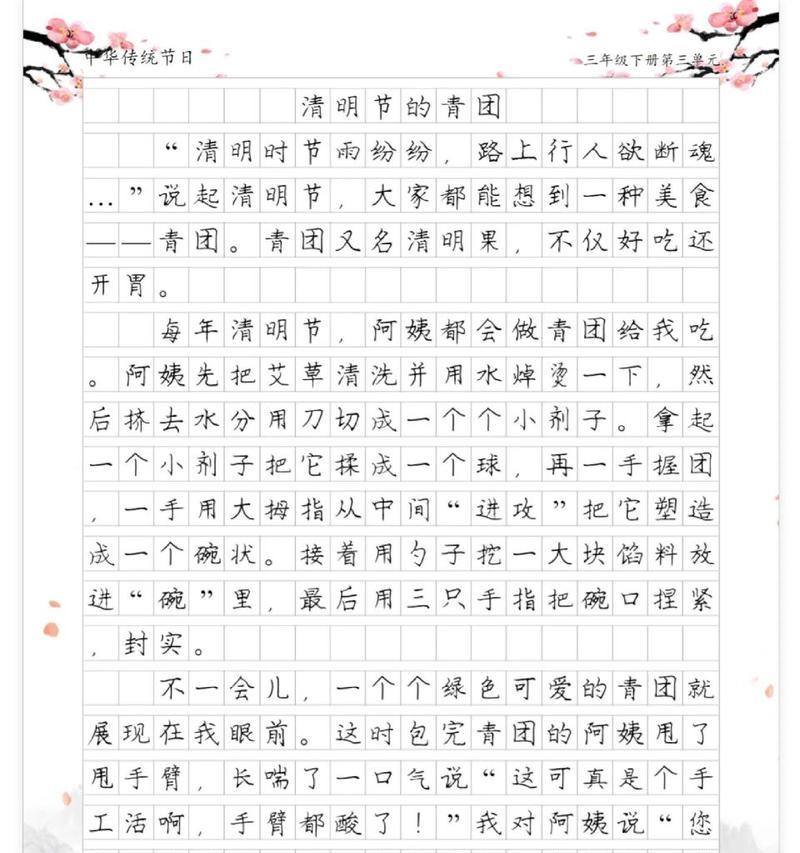 中华传统节日
三年级下册第三单元
清明节的青团
“清明时节雨纷纷，路上行人欲断魂
…”说起清明节，大家都能想到一种美食
——青团。青团又名清明果，不仅好吃还
开胃。
每年清明节，阿姨都会做青团给我吃
。阿姨先把艾草清洗并用水焯烫一下，然
后挤去水分用刀切成一个个小剂子。拿起
一个小剂子把它揉成一个球，再一手握团
，一手用大拇指从中间“进攻”把它塑造
成一个碗状。接着用勺子挖一大块馅料放
进“碗”里，最后用三只手指把碗口捏紧
，封实。
不一会儿，一个个绿色可爱的青团就
展现在我眼前。这时包完青团的阿姨甩了
甩手臂，长喘了一口气说“这可真是个手
工活啊，手臂都酸了！”我对阿姨说“您